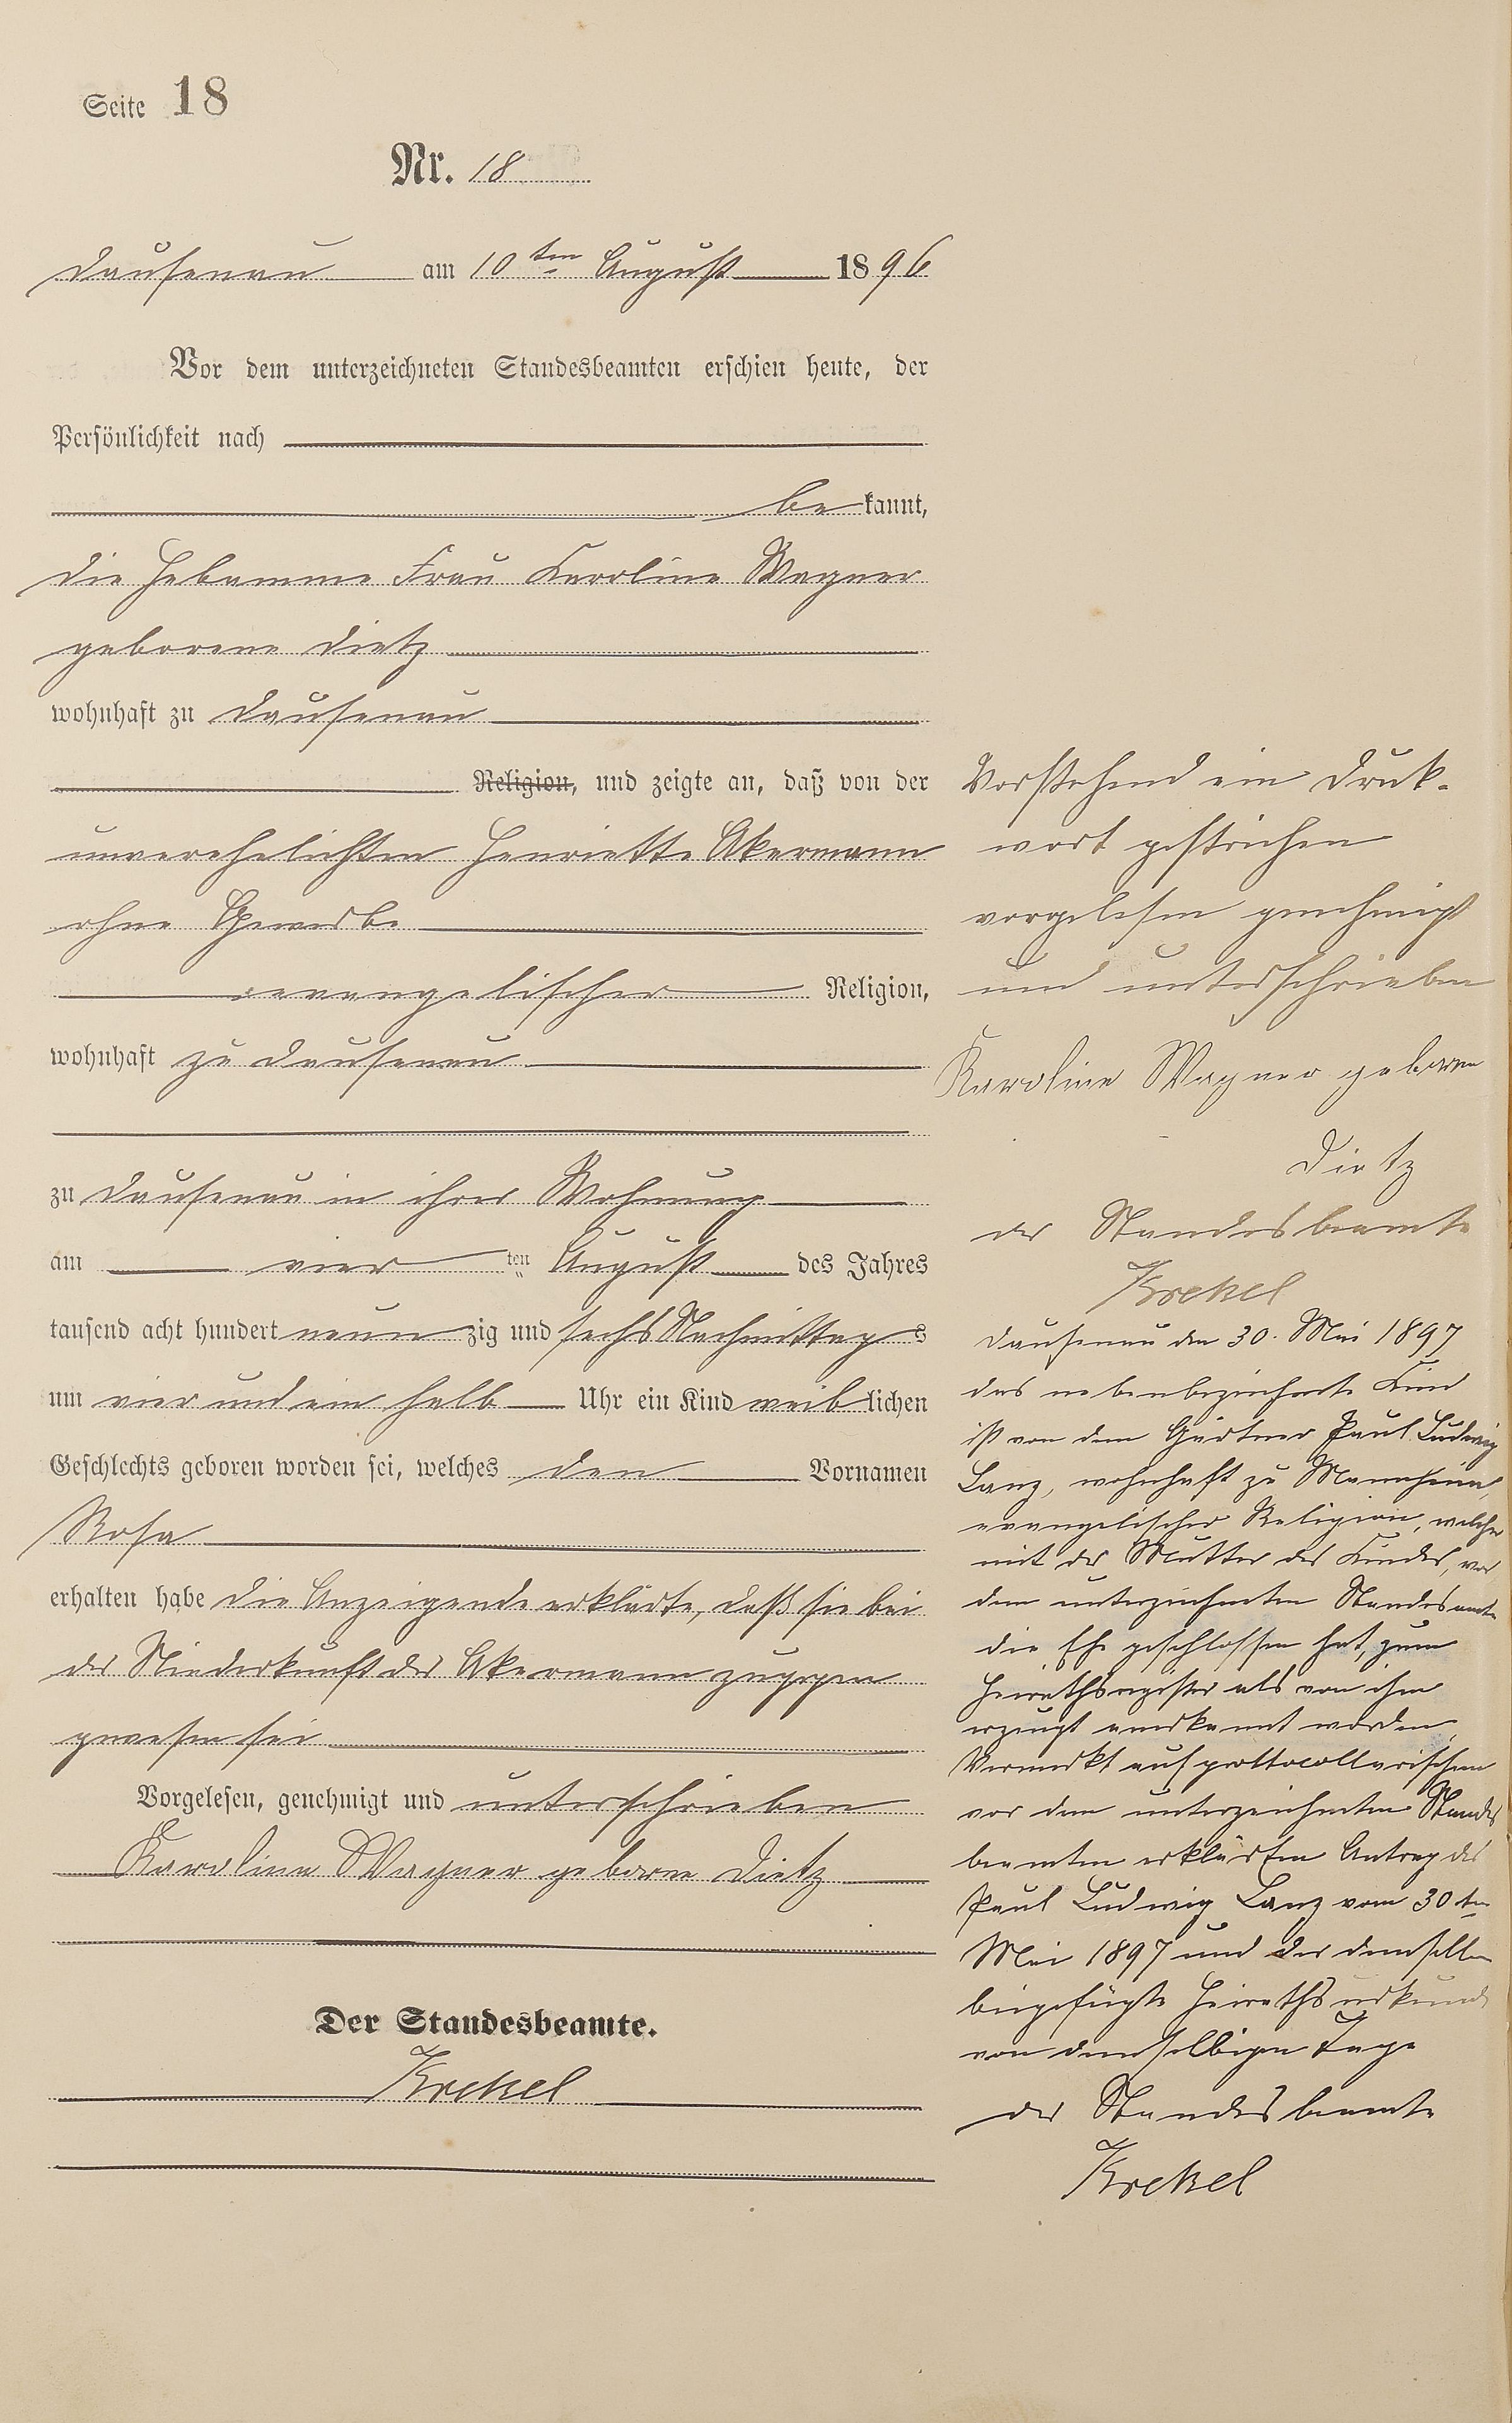 Seite 18
Nr. 18
Dausenau am 10ten August 1896
Vor dem unterzeichneten Standesbeamten erschien heute, der
Persönlichkeit nach
bekannt,
die Hebamme Frau Karoline Wagner
geborene Dietz
wohnhaft zu Dausenau
Religion, und zeigte an, daß von der
unverehelichten Henriette Akermann
ohne Gewerbe
evangelischer Religion,
wohnhaft zu Dausenau
zu Dausenau in ihrer Wohnung
am vier ten August des Jahres
tausend acht hundert neunzig und sechs Nachmittags
um vier und ein halb Uhr ein Kind weiblichen
Geschlechts geboren worden sei, welches den Vornamen
Rosa
erhalten habe die Anzeigende erklärte, daß sie bei
der Niederkunft der Akermann zugegen
gewesen sei
Vorgelesen, genehmigt und unterschrieben
Karoline Wagner geborne Dietz
Der Standesbeamte.
Krekel
Vorstehend ein Druk-
wort gestrichen
vorgelesen genehmigt
und unterschrieben
Karoline Wagner geborne
Dietz
der Standesbeamte
Krekel
Dausenau den 30. Mai 1897
das nebenbezeichnete Kind
ist von dem Gärtner Paul Ludwig
Lanz, wohnhaft zu Mannheim,
evangelischer Religion, welcher
mit der Mutter des Kindes, vor
dem unterzeichneten Standesamte
die Ehe geschlossen hat, zum
Heirathsregister als von ihm
erzeugt anerkannt worden
Vermerkt auf prottocollarischen
vor dem unterzeichneten Standes
beamten erklärten Antrag des
Paul Ludwig Lanz vom 30ten
Mai 1897 und der demselben
beigefügte Heirathsurkunde
von demselbigen Tage
der Standesbeamte
Krekel